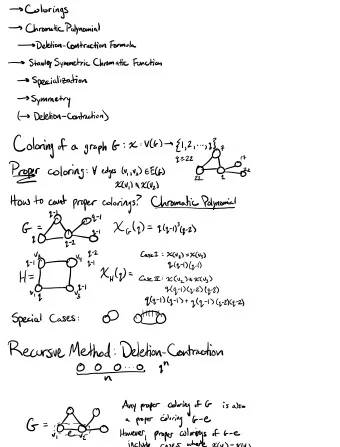 → Colorings
→ Chromatic Polynomial
→ Deletion-Contraction Formula
→ Stanley Symmetric Chromatic Function
→ Specialization
→ Symmetry
(→ Deletion-Contraction)
Coloring of a graph G: x: V(G) → {1,2,...,q}
q=22
7
17
22
2
Proper coloring: ∀ edges (v₁,v₂) ∈ E(G)
x(v₁) ≠ x(v₂)
How to count proper colorings? Chromatic Polynomial
G =
q-1
q-1
q
q-2
q-1
X_G(q) = q(q-1)³(q-2)
H =
q-1
q-2
q-1
v₁ q
q-1
X_H(q) =
Case I:
q(q-1)(q-1)
Case II:
q(q-1)(q-2)(q-2)
q(q-1)(q-1) + q(q-1)(q-2)(q-2)
Special Cases:
Recursive Method: Deletion-Contraction
n
qⁿ
G =
v₁ e v₂
Any proper coloring of G is also
a proper coloring G-e
However, proper colorings of G-e
include cases where x(v₁) = x(v₂)